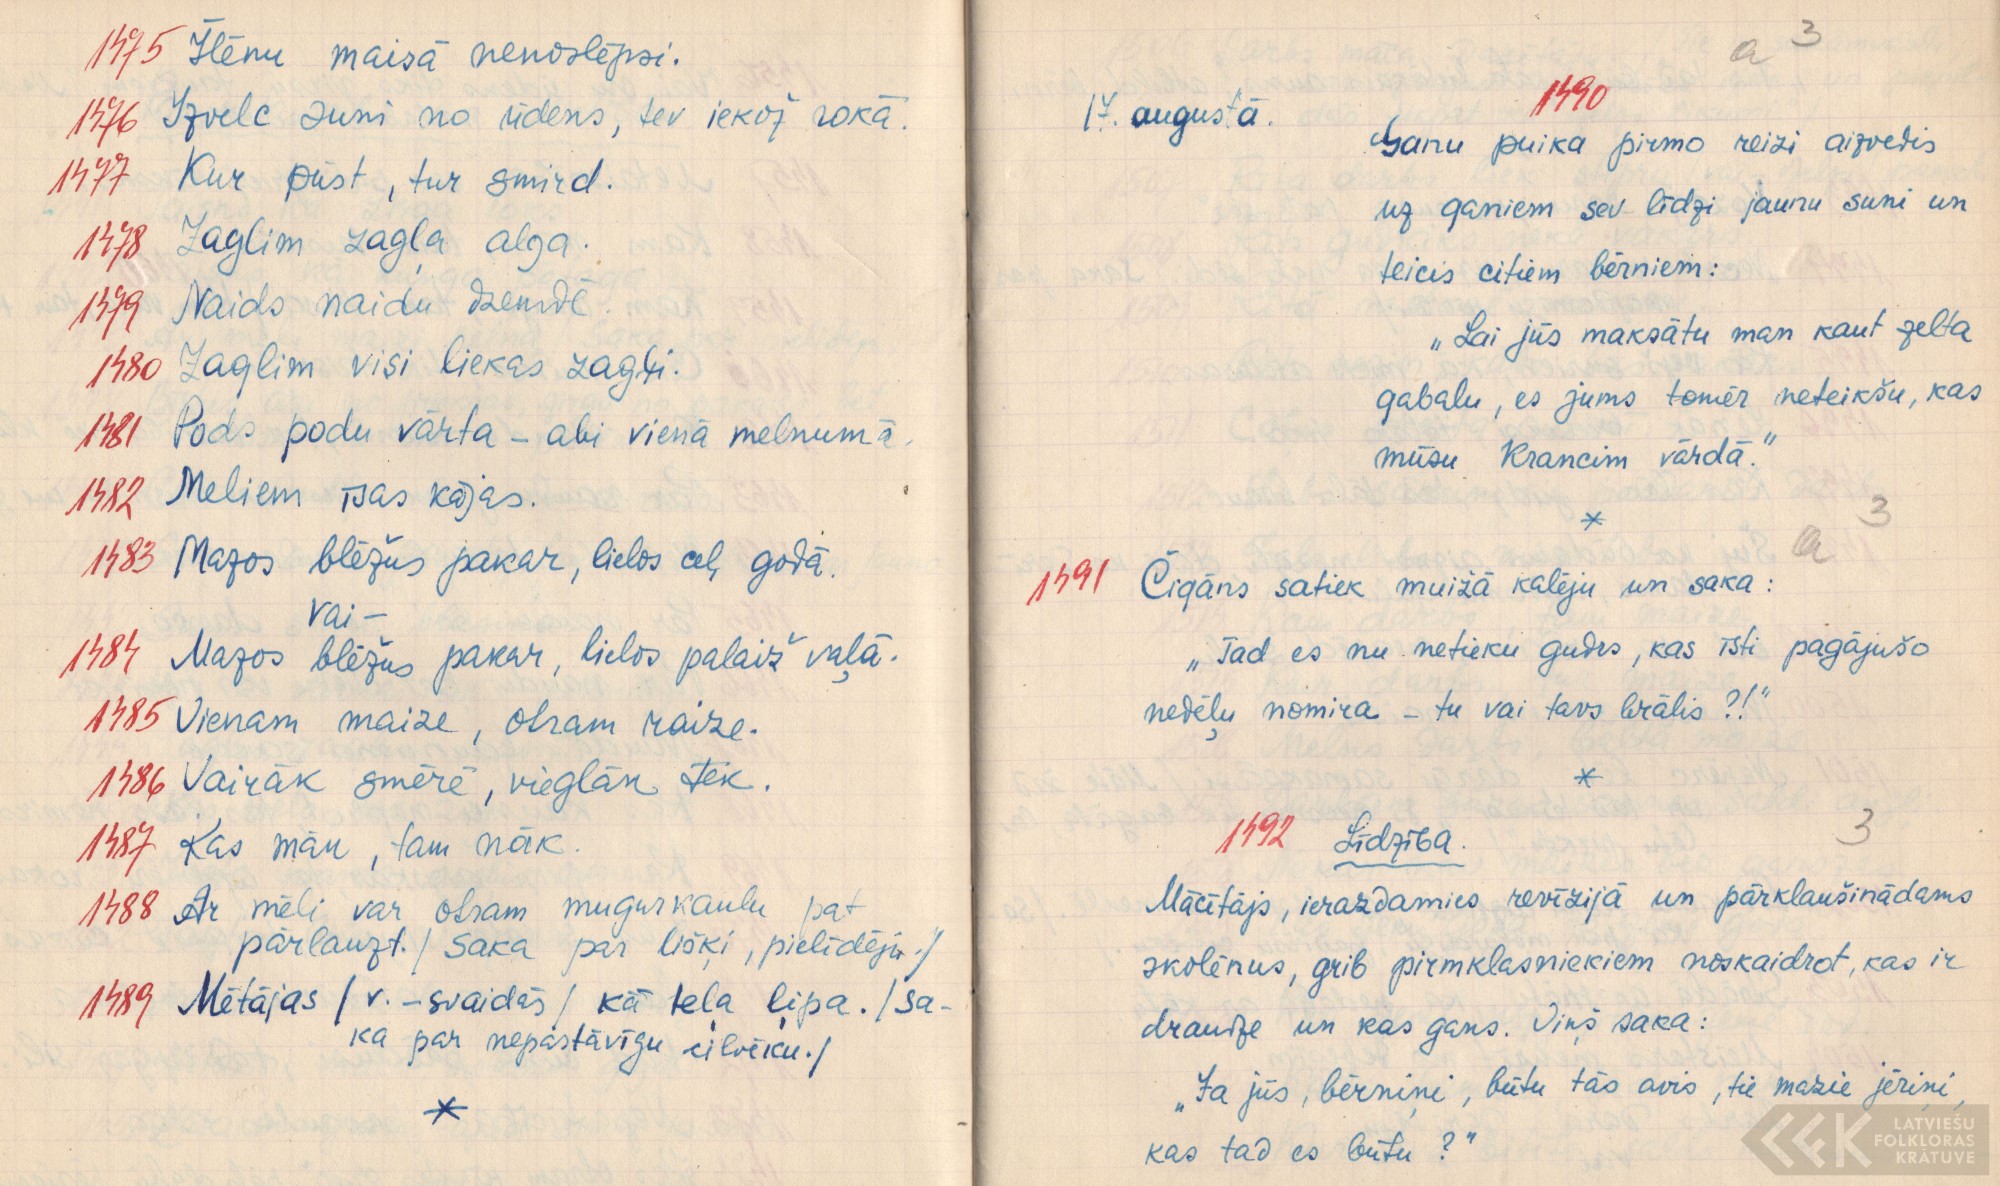 1475 Īlēnu maisā nenoslēpsi.
1476 Izvelc suni no ūdens, tev iekož rokā.
1477 Kur pūst, tur smird.
1478 Zaglim zagļa alga.
1479 Naids naidu dzemdē.
1480 Zaglim visi liekas zagļi.
1481 Pods podu vārta – abi vienā melnumā.
1482 Meliem īsas kājas.
1483 Mazos blēžus pakar, lielos ceļ godā.
vai –
1484 Mazos blēžus pakar, lielos palaiž vaļā.
1485 Vienam maize, otram raize.
1486 Vairāk smērē, vieglāk tek.
1487 Kas māk, tam nāk.
1488 Ar mēli var otram mugurkaulu pat
pārlauzt. / saka par lišķi, pielīdēju. /
1489 Mētājas / v. – svaidās / kā teļa ļipa. / sa-
ka par nepastāvīgu cilvēku. /
*
a 3
1490
17. augustā.
Ganu puika pirmo reizi aizvedis
uz ganiem sev līdzi jaunu suni un
teicis citiem bērniem:
„Lai jūs maksātu man kaut zelta
gabalu, es jums tomēr neteikšu, kas
mūsu Krancim vārdā.”
*
a 3
1491 Čigāns satiek muižā kalēju un saka:
„Tad es nu netieku gudrs, kas īsti pagājušo
nedēļu nomira – tu vai tavs brālis?!”
*
1492 Līdzība. 3
Mācītājs, ierazdamies revīzijā un pārklaušinādams
skolēnus, grib pirmklasniekiem noskaidrot, kas ir
draudze un kas gans. Viņš saka:
„Ja jūs, bērniņi, būtu tās avis, tie mazie jēriņi,
kas tad es būtu?”
LATVIEŠU
FOLKLORAS
KRĀTUVE